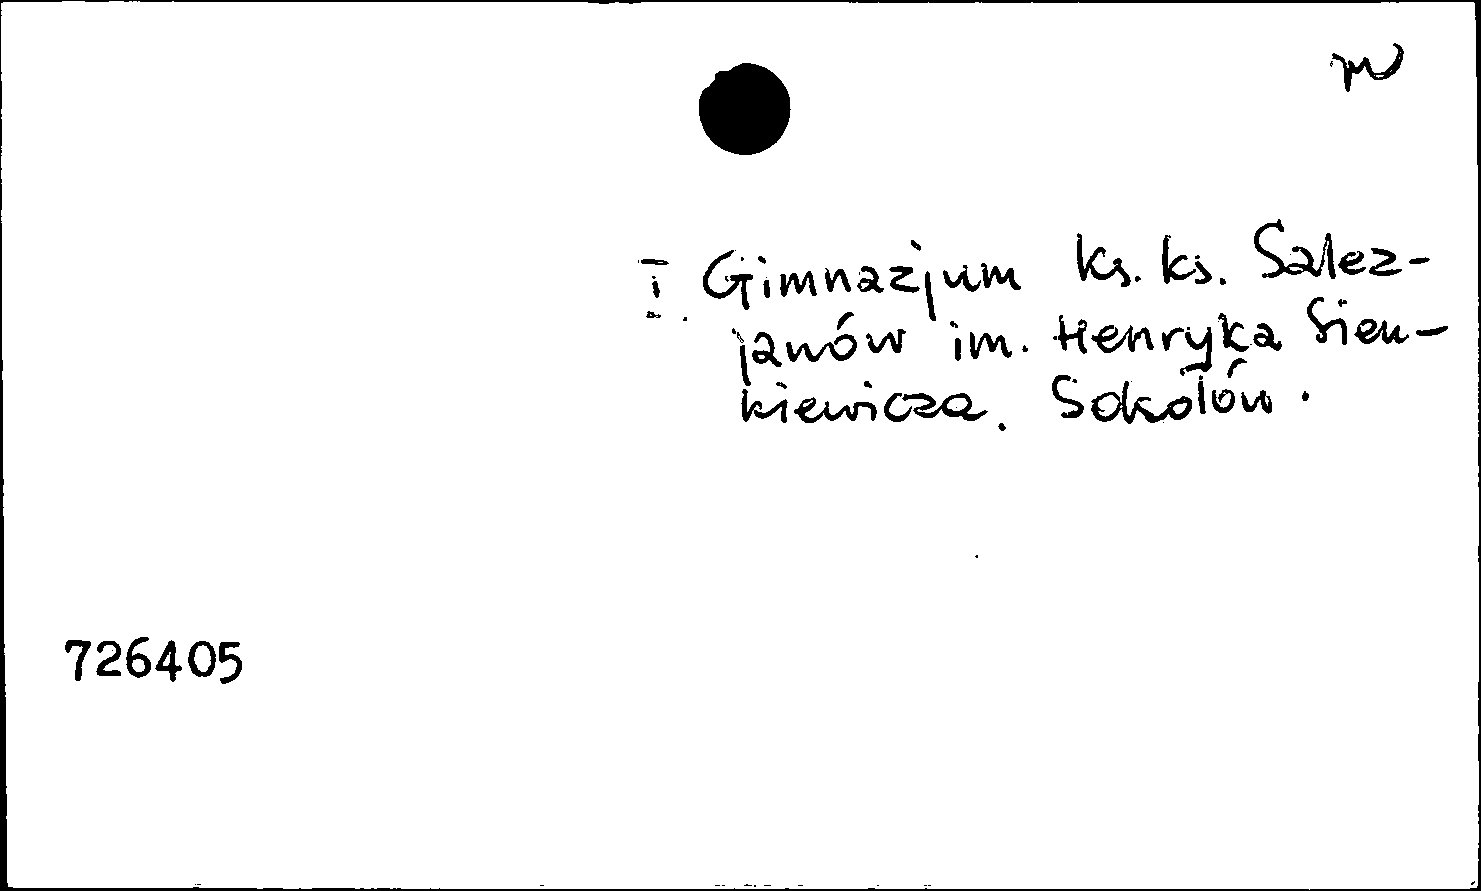 I. Gimnazjum ks. ks. Salez-
janów im. Henryka Sien-
kiewicza. Sokołów.
726405